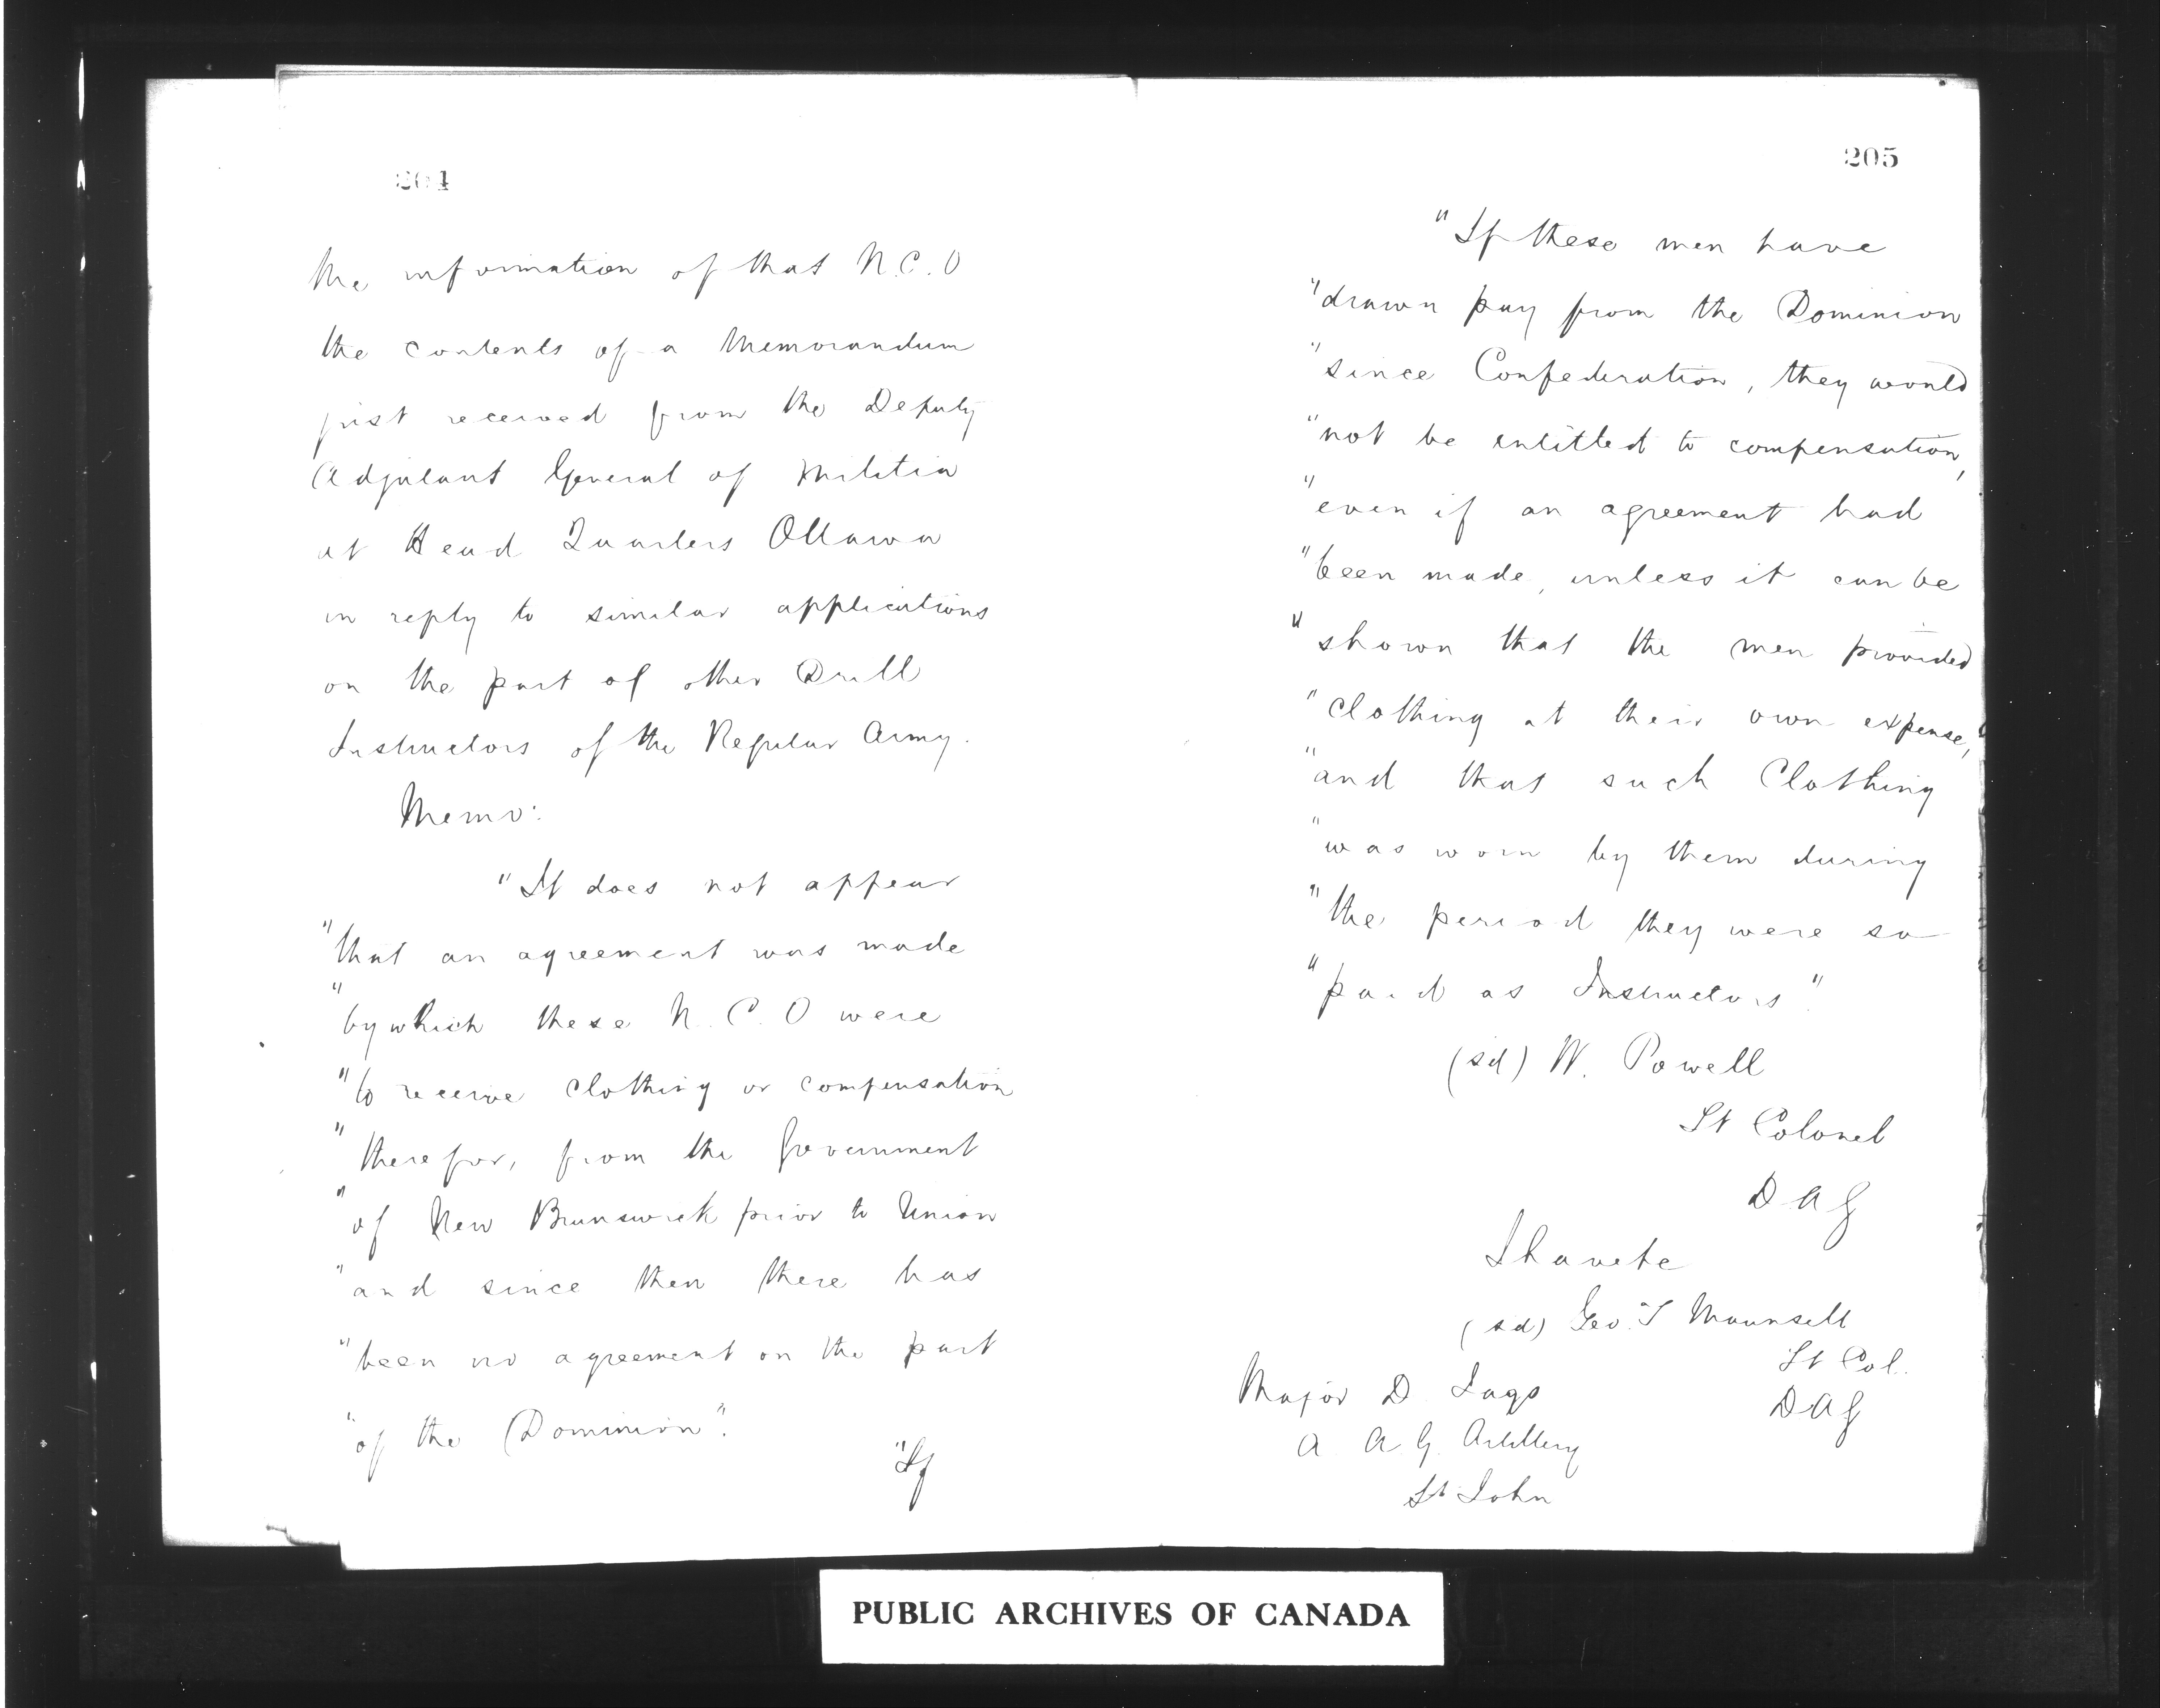 204
the information of that N.C.O
the contents of a Memorandum
just received from the Deputy
Adjutant General of Militia
at Head Quarters Ottawa
in reply to similar applications
on the part of other Drill
Instructors of the Regular Army.
Memo:
"It does not appear
"that an agreement was made
"by which these N.C.O were
"to receive clothing or compensation
"therefor, from the Government
"of New Brunswick prior to Union
"and since then there has
"been no agreement on the part
"of the Dominion".
"If
205
"If these men have
"drawn pay from the Dominion
"since Confederation, they would
"not be entitled to compensation,
"even if an agreement had
"been made, unless it can be
"shown that the men provided
"clothing at their own expense,
"and that such Clothing
"was worn by them during
"the period they were so
"paid as Instructors".
(sd) W. Powell
Lt Colonel
D A G
I have &c
(sd) Geo. J Maunsell
Lt Col.
D A G
Major D. Jago
A. A. G. Artillery
St John
PUBLIC ARCHIVES OF CANADA